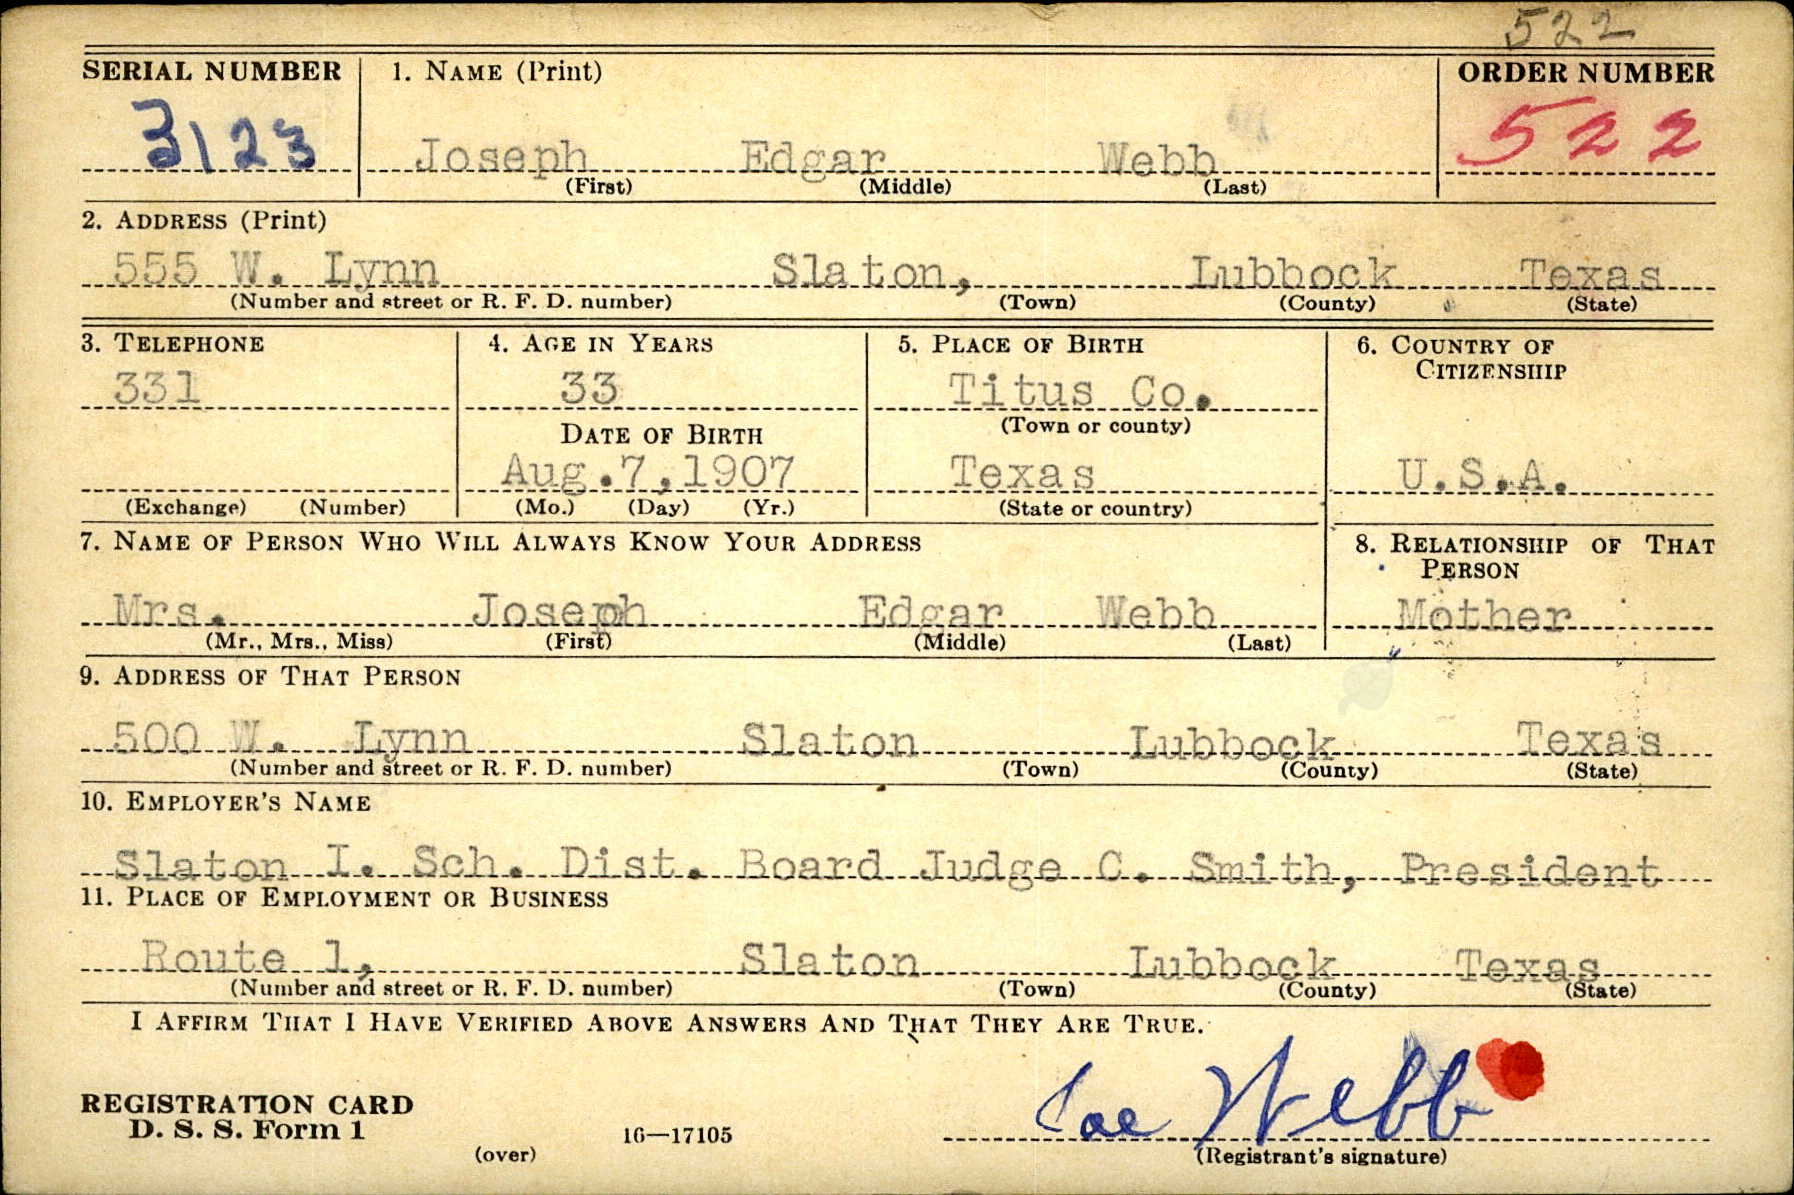 522
SERIAL NUMBER 1. NAME (Print) ORDER NUMBER
3123 Joseph Edgar Webb 522
(First) (Middle) (Last)
2. ADDRESS (Print)
555 W. Lynn Slaton, Lubbock Texas
(Number and street or R. F. D. number) (Town) (County) (State)
3. TELEPHONE 4. AGE IN YEARS 5. PLACE OF BIRTH 6. COUNTRY OF
CITIZENSHIP
331 33 Titus Co.
(Town or county)
DATE OF BIRTH
Aug.7,1907 Texas U.S.A.
(Exchange) (Number) (Mo.) (Day) (Yr.) (State or country)
7. NAME OF PERSON WHO WILL ALWAYS KNOW YOUR ADDRESS 8. RELATIONSHIP OF THAT
PERSON
Mrs. Joseph Edgar Webb Mother
(Mr., Mrs., Miss) (First) (Middle) (Last)
9. ADDRESS OF THAT PERSON
500 W. Lynn Slaton Lubbock Texas
(Number and street or R. F. D. number) (Town) (County) (State)
10. EMPLOYER'S NAME
Slaton I. Sch. Dist. Board Judge C. Smith, President
11. PLACE OF EMPLOYMENT OR BUSINESS
Route 1, Slaton Lubbock Texas
(Number and street or R. F. D. number) (Town) (County) (State)
I AFFIRM THAT I HAVE VERIFIED ABOVE ANSWERS AND THAT THEY ARE TRUE.
REGISTRATION CARD
D. S. S. Form 1 16—17105 Joe Webb
(over) (Registrant's signature)